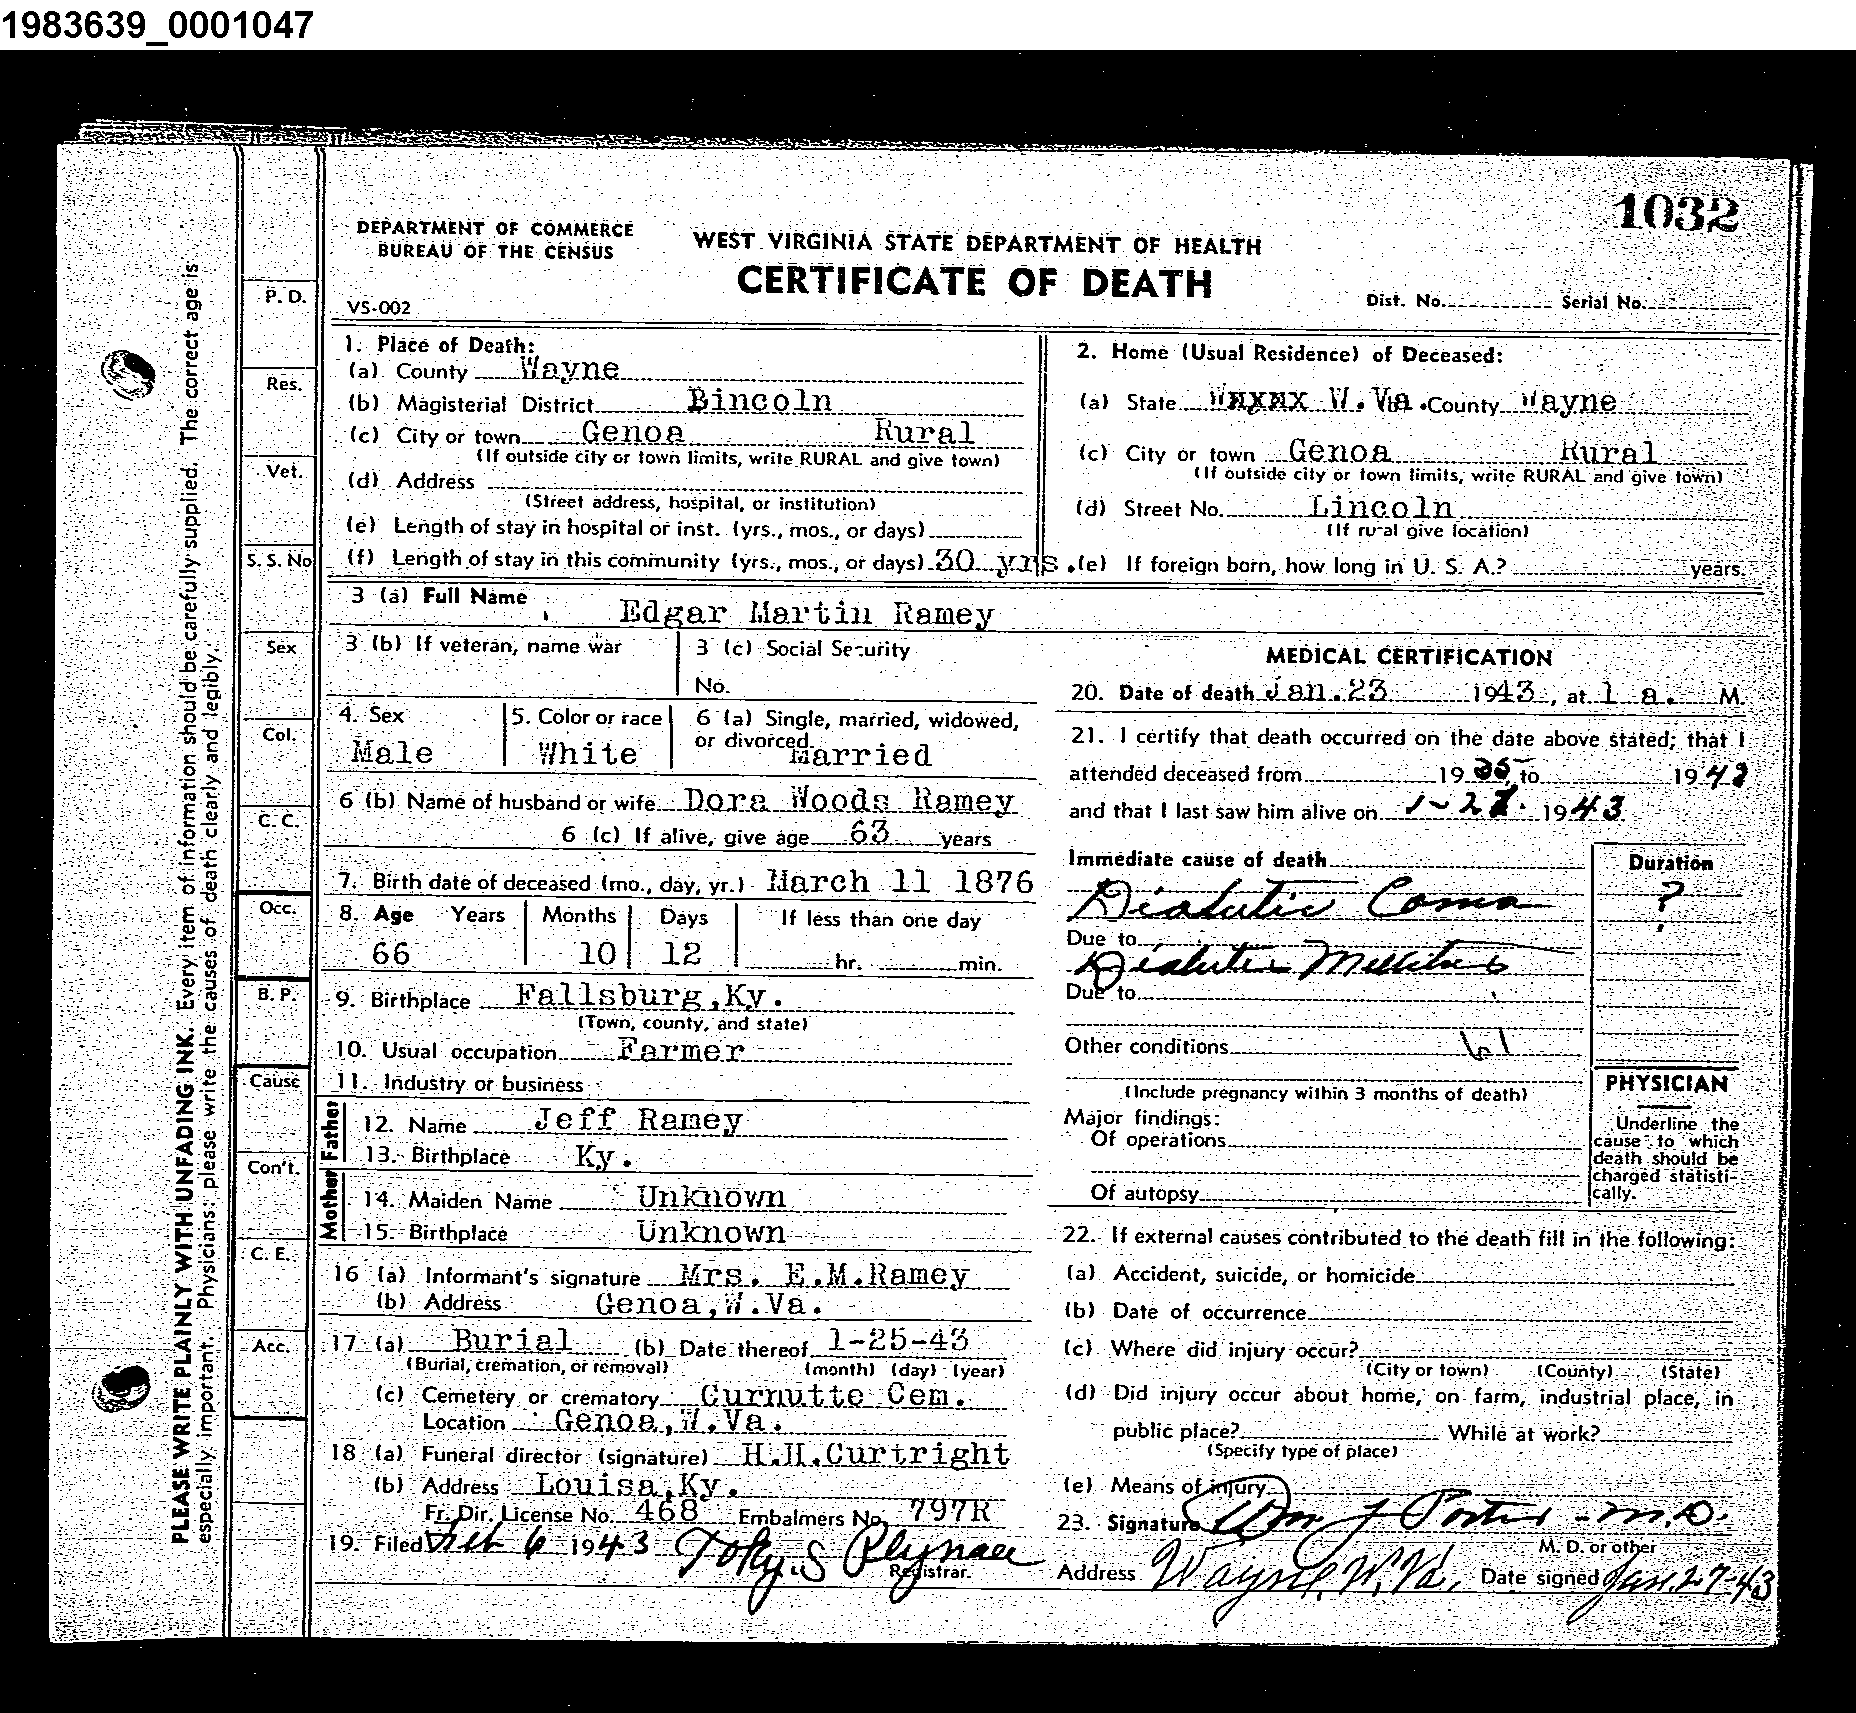 1983639_0001047
1032
DEPARTMENT OF COMMERCE
BUREAU OF THE CENSUS
WEST VIRGINIA STATE DEPARTMENT OF HEALTH
CERTIFICATE OF DEATH
VS-002
Dist. No. Serial No.
PLEASE WRITE PLAINLY WITH UNFADING INK. Every item of information should be carefully supplied. The correct age is
especially important. Physicians: please write the causes of death clearly and legibly.
P. D.
Res.
Vet.
S. S. No
Sex
Col.
C. C.
Occ.
B. P.
Cause
Con't.
C. E.
Acc.
1. Place of Death:
(a) County Wayne
(b) Magisterial District Bincoln
(c) City or town Genoa Rural
(If outside city or town limits, write RURAL and give town)
(d) Address
(Street address, hospital, or institution)
(e) Length of stay in hospital or inst. (yrs., mos., or days)
(f) Length of stay in this community (yrs., mos., or days) 30 yrs.
2. Home (Usual Residence) of Deceased:
(a) State W.Va. County Wayne
(c) City or town Genoa Rural
(If outside city or town limits, write RURAL and give town)
(d) Street No. Lincoln
(If rural give location)
(e) If foreign born, how long in U. S. A.? years
3 (a) Full Name Edgar Martin Ramey
3 (b) If veteran, name war
3 (c) Social Security
No.
4. Sex Male
5. Color or race White
6 (a) Single, married, widowed,
or divorced Married
6 (b) Name of husband or wife Dora Woods Ramey
6 (c) If alive, give age 63 years
7. Birth date of deceased (mo., day, yr.) March 11 1876
8. Age Years Months Days If less than one day
66 10 12 hr. min.
9. Birthplace Fallsburg,Ky.
(Town, county, and state)
10. Usual occupation Farmer
11. Industry or business
Father
12. Name Jeff Ramey
13. Birthplace Ky.
Mother
14. Maiden Name Unknown
15. Birthplace Unknown
16 (a) Informant's signature Mrs. E.M.Ramey
(b) Address Genoa,W.Va.
17 (a) Burial (b) Date thereof 1-25-43
(Burial, cremation, or removal) (month) (day) (year)
(c) Cemetery or crematory Curnutte Cem.
Location Genoa,W.Va.
18 (a) Funeral director (signature) H.H.Curtright
(b) Address Louisa,Ky.
Fr. Dir. License No. 468 Embalmers No. 797R
19. Filed Feb 6 1943
Registrar.
MEDICAL CERTIFICATION
20. Date of death Jan.23 1943, at 1 a. M.
21. I certify that death occurred on the date above stated; that I
attended deceased from 1935 to 1943
and that I last saw him alive on 1-21. 1943
Immediate cause of death Duration
Diabetic Coma ?
Due to
Diabetes Mellitus
Due to
Other conditions 61
(Include pregnancy within 3 months of death)
Major findings:
Of operations
Of autopsy
PHYSICIAN
Underline the
cause to which
death should be
charged statisti-
cally.
22. If external causes contributed to the death fill in the following:
(a) Accident, suicide, or homicide
(b) Date of occurrence
(c) Where did injury occur?
(City or town) (County) (State)
(d) Did injury occur about home, on farm, industrial place, in
public place? While at work?
(Specify type of place)
(e) Means of injury
23. Signature Wm J Porter M.D.
M. D. or other
Address Wayne, W.Va. Date signed Jan. 27-43